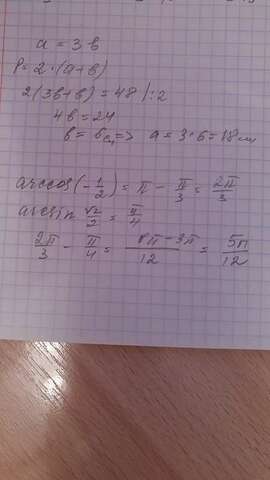 a = 3·b
P = 2·(a+b)
2(3b+b) = 48 | :2
4b = 24
b = 6см => a = 3·6 = 18см
arccos(-1/2) = π - π/3 = 2π/3
arcsin √2/2 = π/4
2π/3 - π/4 = 8π-3π/12 = 5π/12